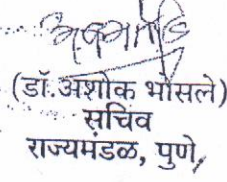 (डॉ.अशोक भोसले)
सचिव
राज्यमंडळ, पुणे,